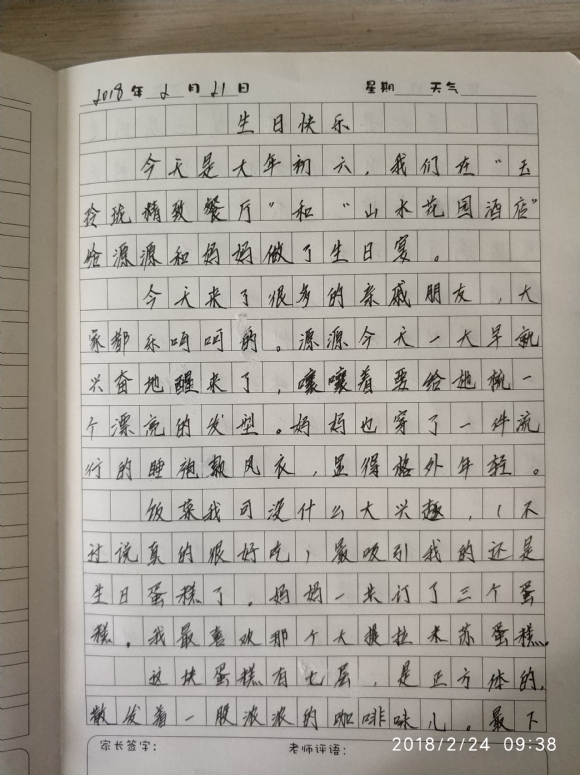 2018年2月21日 星期 天气
生日快乐
今天是大年初六，我们在“玉
玲珑精致餐厅”和“山水花园酒店”
给源源和妈妈做了生日宴。
今天来了很多的亲戚朋友，大
家都乐呵呵的。源源今天一大早就
兴奋地醒来了，嚷嚷着要给她梳一
个漂亮的发型。妈妈也穿了一件流
行的睡袍款风衣，显得格外年轻。
饭菜我可没什么大兴趣，（不
过说真的很好吃）最吸引我的还是
生日蛋糕了。妈妈一共订了三个蛋
糕。我最喜欢那个大提拉米苏蛋糕。
这块蛋糕有七层，是正方体的，
散发着一股浓浓的咖啡味儿。最下
家长签字： 老师评语：
2018/2/24 09:38